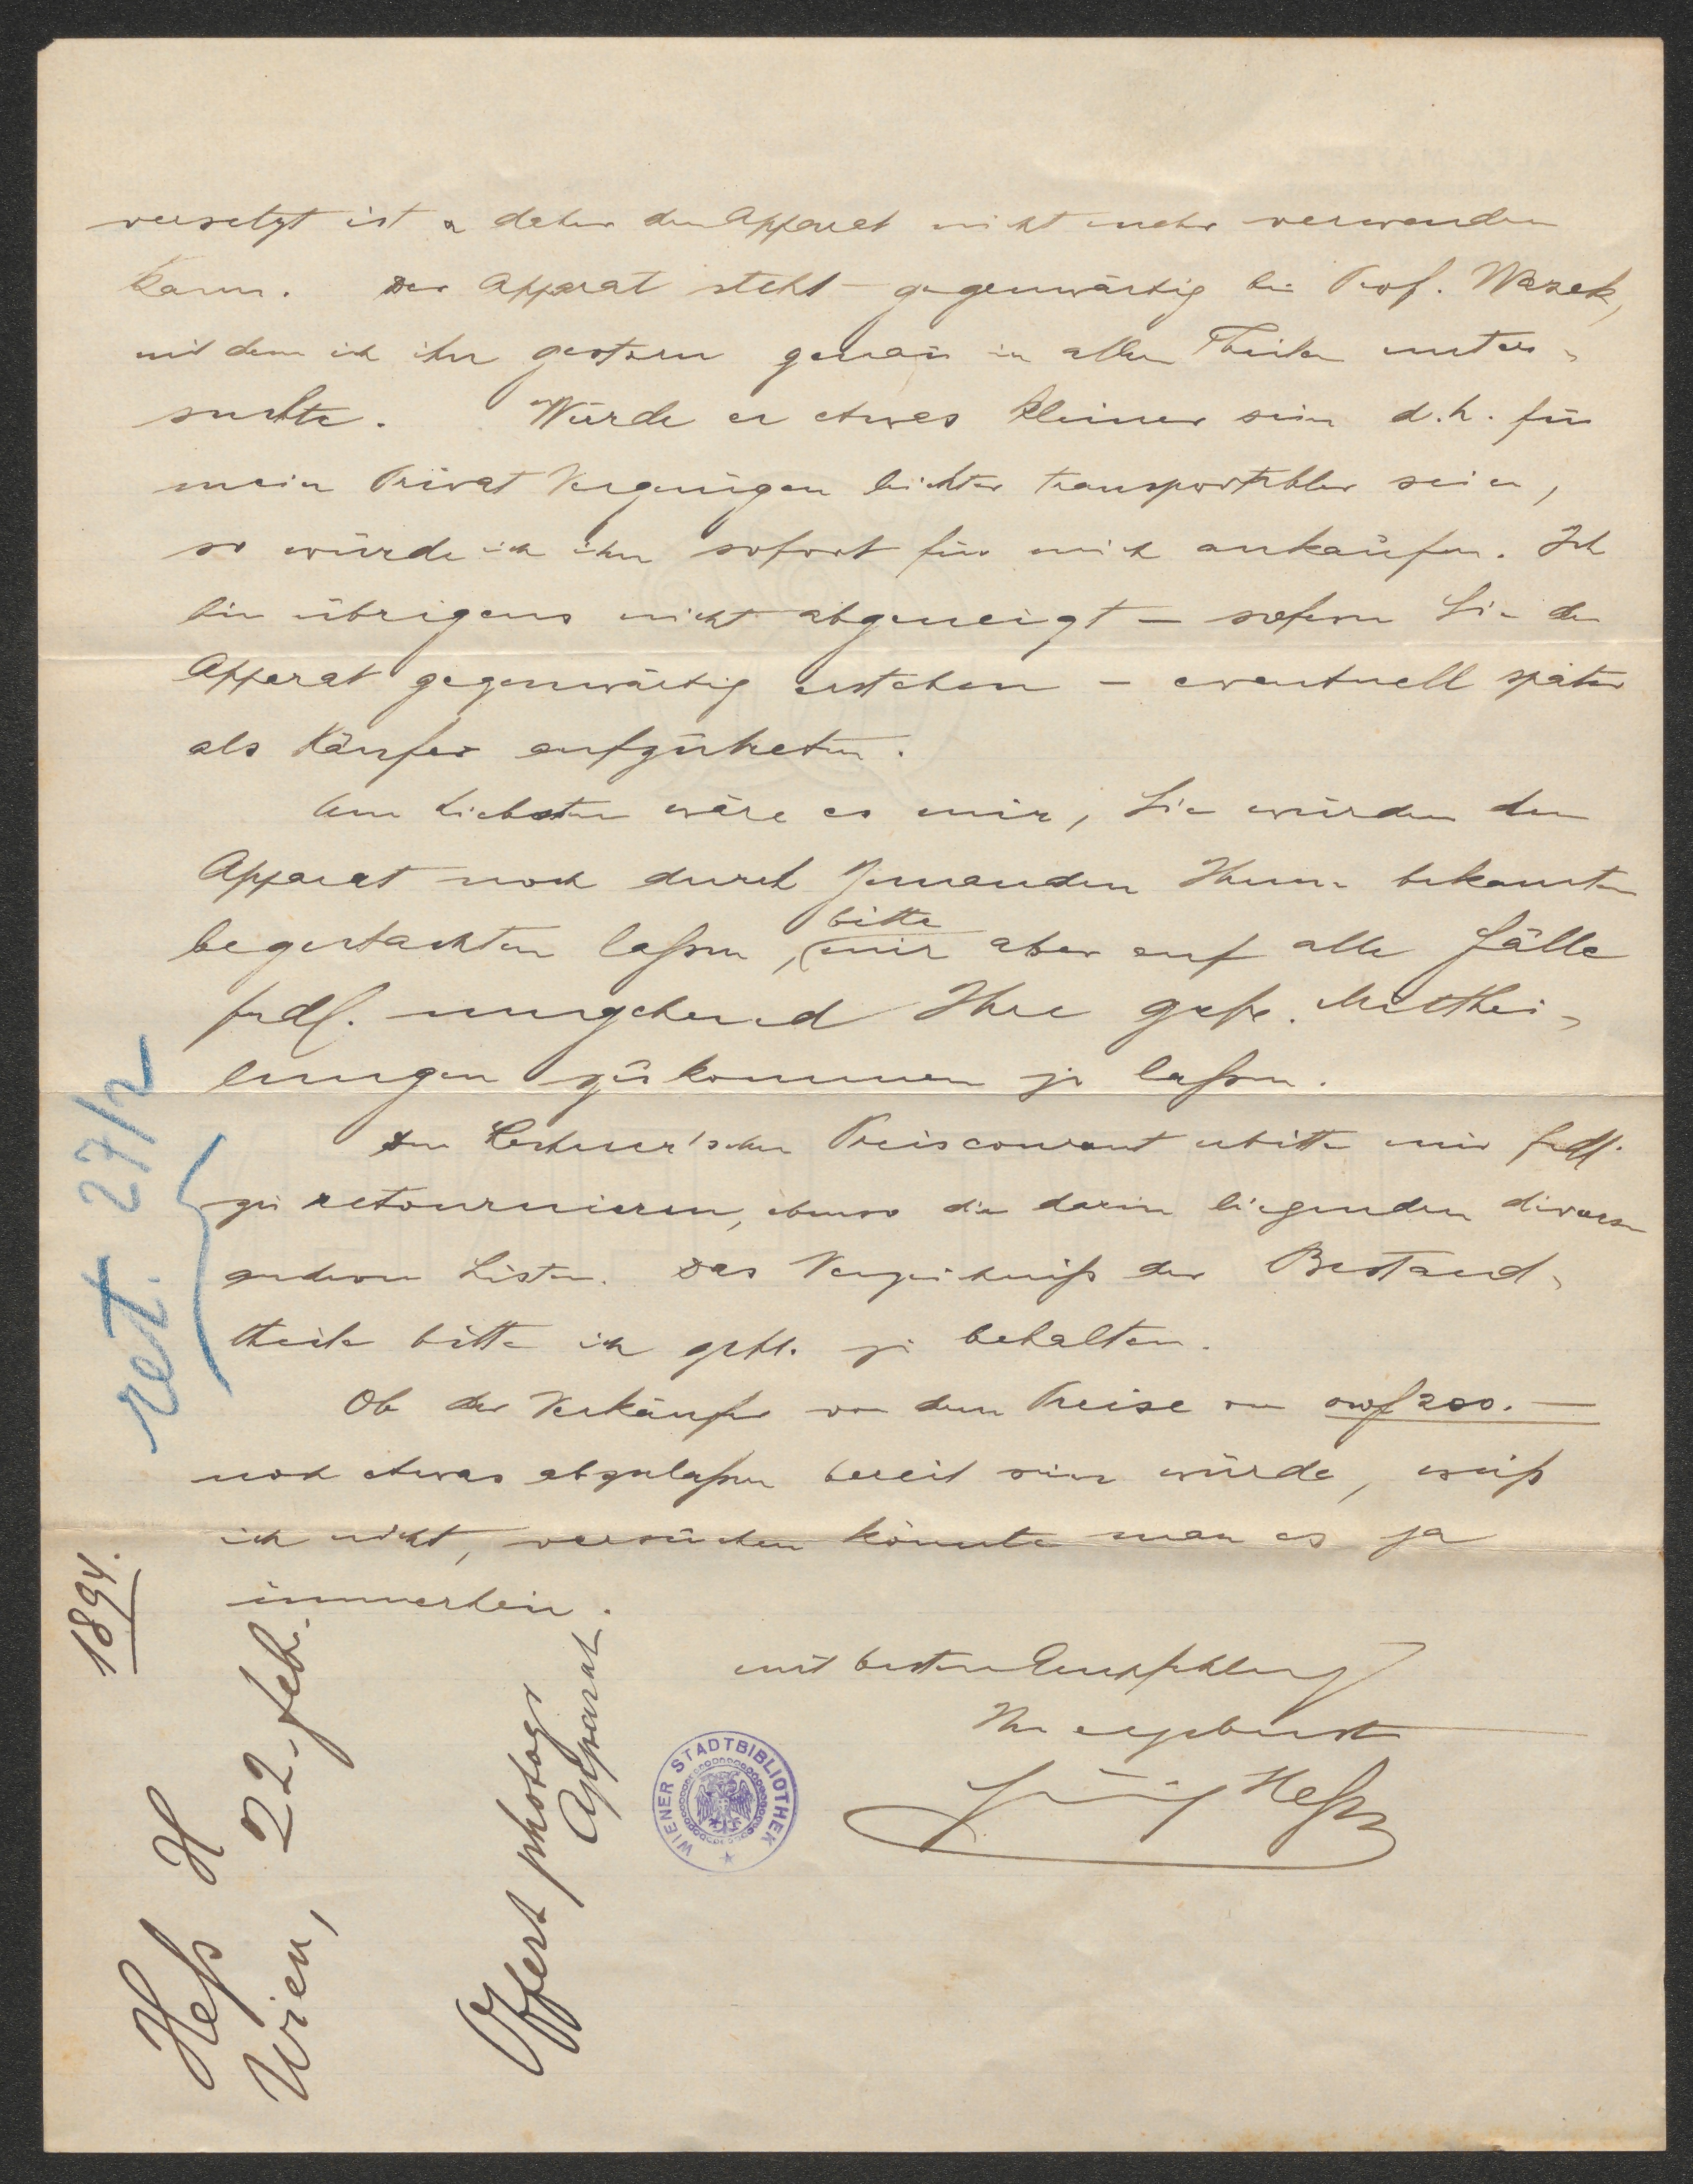 versetzt ist & daher den Apparat nicht mehr verwenden
kann. Der Apparat steht gegenwärtig bei Prof. Wasek,
mit dem ich ihn gestern genau in allen Theilen unter-
suchte. Würde er etwas kleiner sein d.h. für
mein Privat Vergnügen leichter transportabler sein,
so würde ich ihn sofort für mich ankaufen. Ich
bin übrigens nicht abgeneigt – sofern Sie den
Apparat gegenwärtig erstehen – eventuell später
als Käufer aufzutreten.
Am liebsten wäre es mir, Sie würden den
Apparat noch durch Jemanden Ihnen bekannten
begutachten laßen, bitte mir aber auf alle Fälle
frdl. umgehend Ihre gefe. Mitthei-
lungen zukommen zu laßen.
Den Lechner'schen Preiscourant erbitte mir frdl.
zu retournieren, ebenso die darin liegenden diversen
anderen Listen. Das Verzeichniß der Bestand-
theile bitte ich gefl. zu behalten.
Ob der Verkäufer von dem Preise von öwf 200.—
noch etwas abzulaßen bereit sein würde, weiß
ich nicht, versuchen könnte man es ja
immerhin.
mit besten Empfehlung
Ihr ergebenst
Heß
ret. 27/2
1894.
Heß H
Wien, 22. feb.
Offert photogr
Apparat
WIENER STADTBIBLIOTHEK